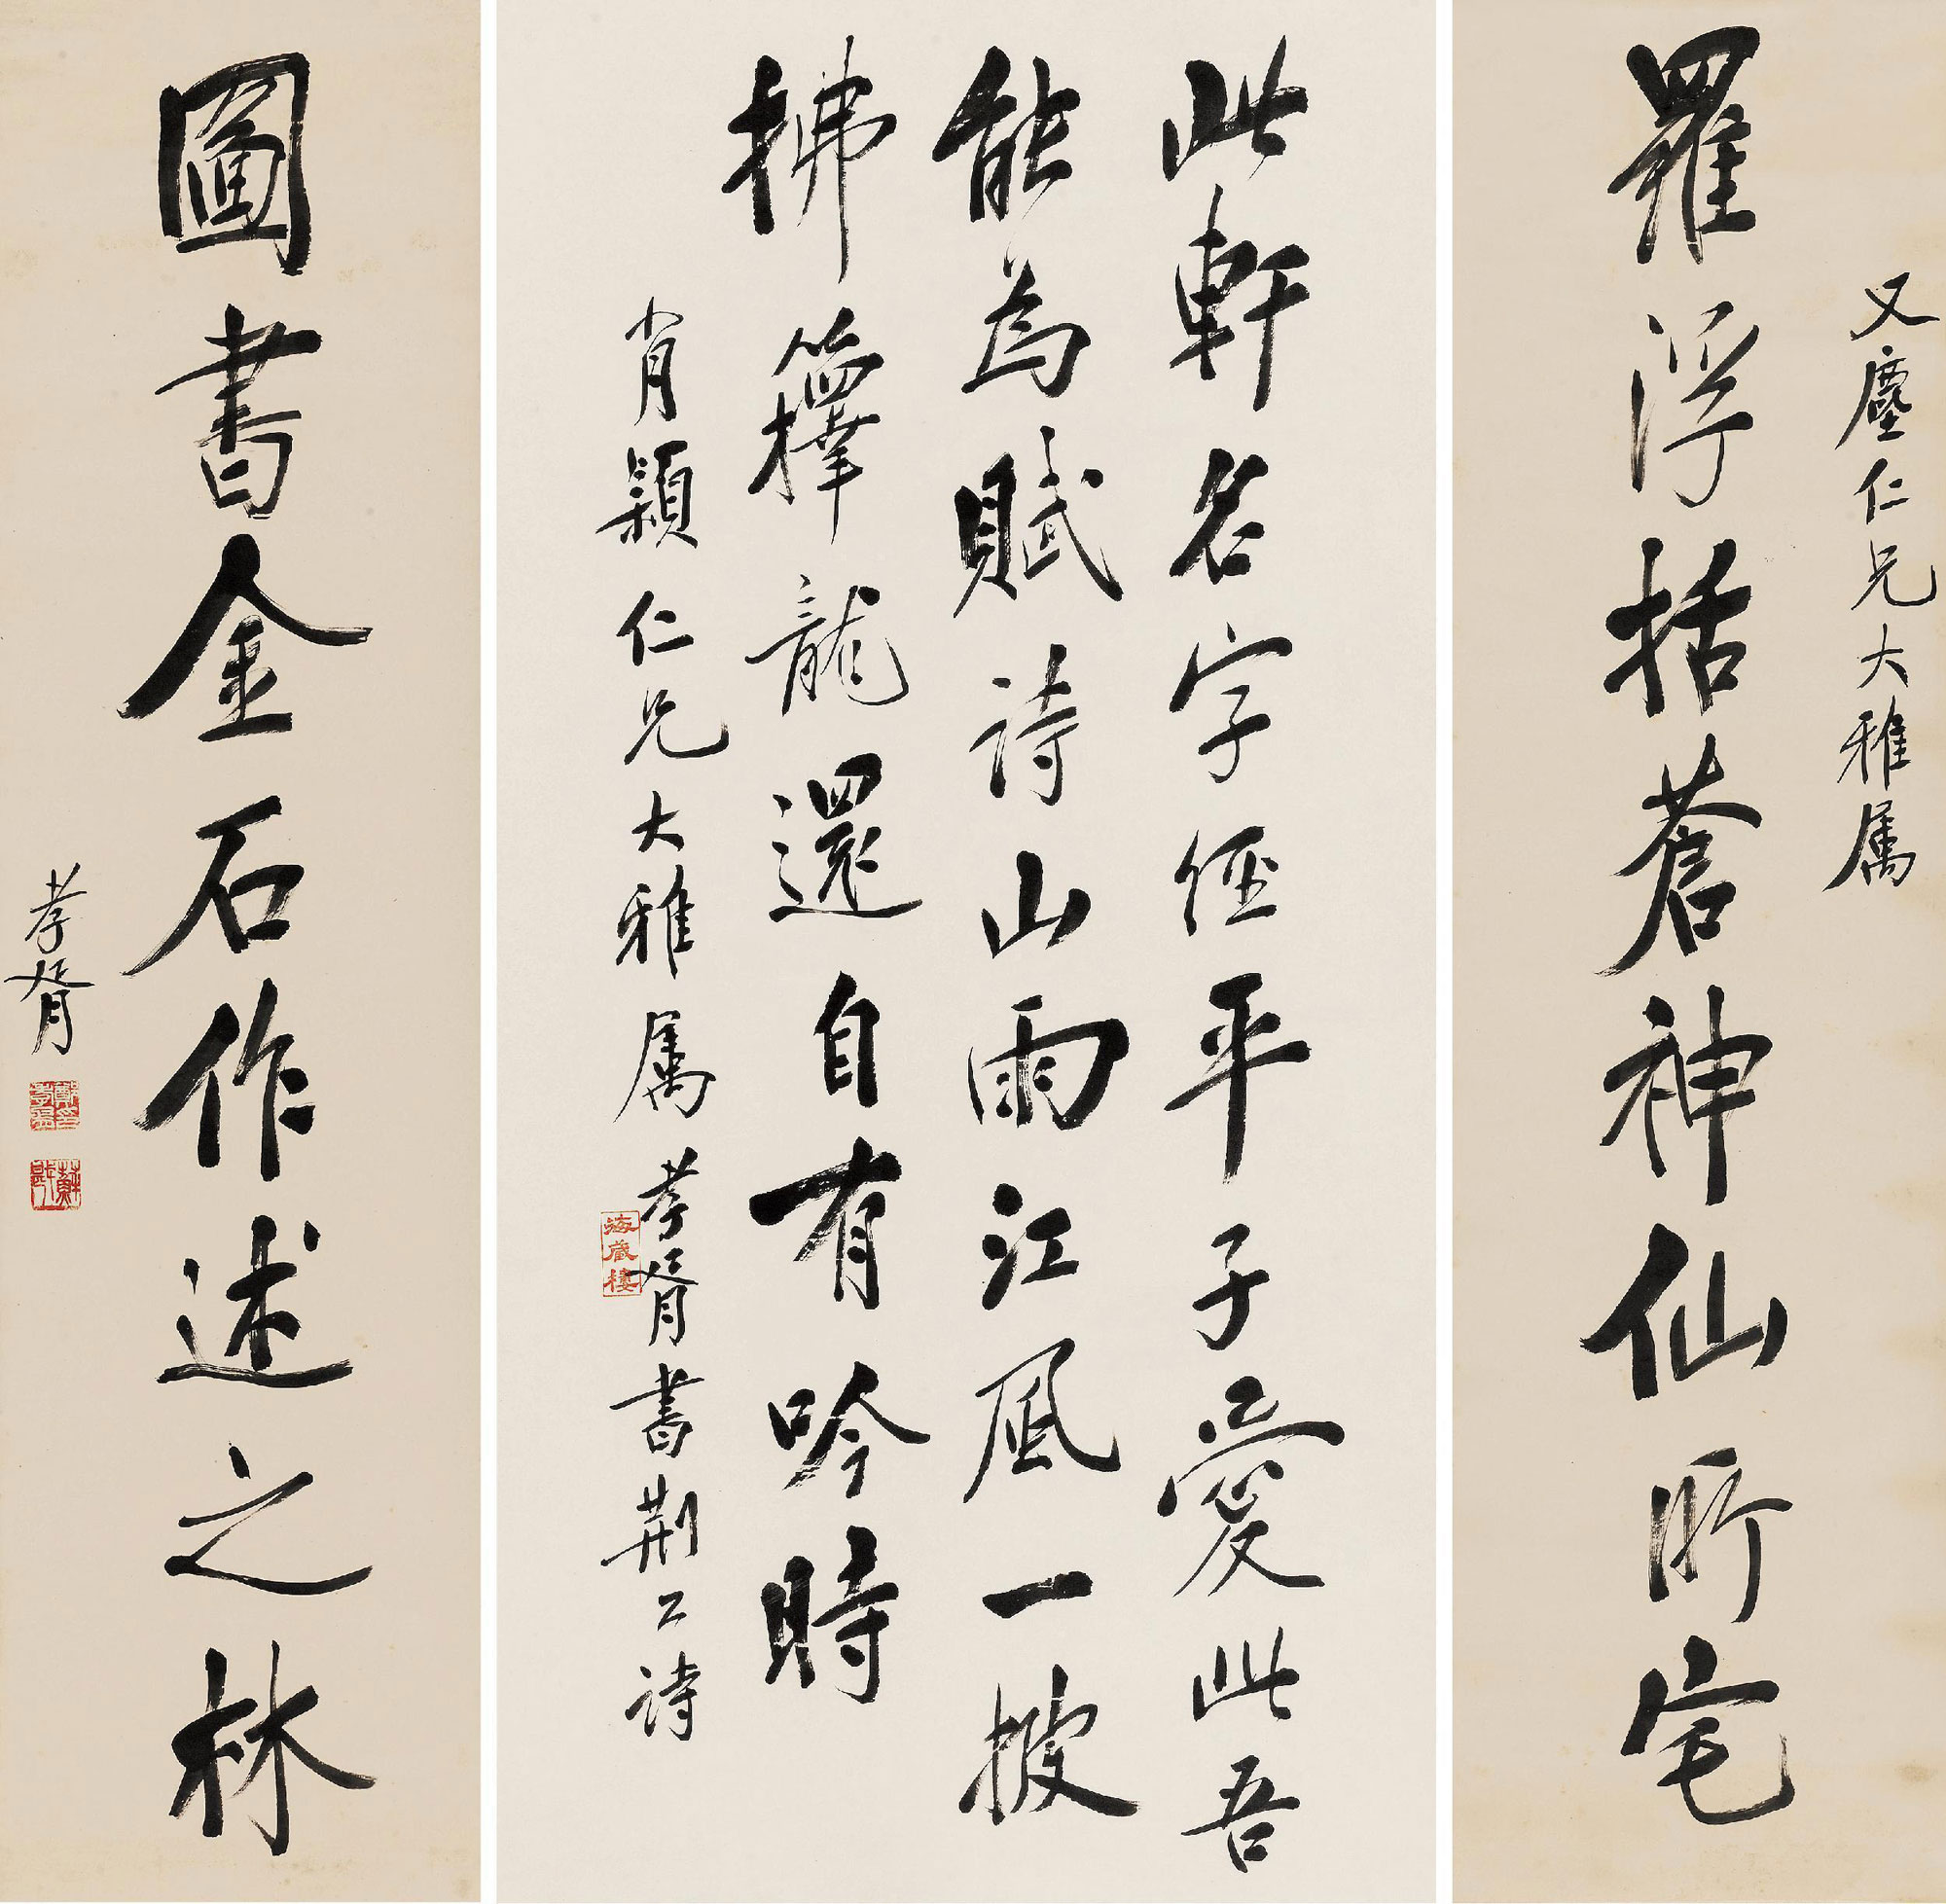 又塵仁兄大雅属
羅浮括蒼神仙所宅
此軒名字經平子愛此吾
能為賦詩山雨江風一披
拂籜龍還自有吟時
肖穎仁兄大雅属孝胥書荆公詩
海藏樓
圖書金石作述之林
孝胥